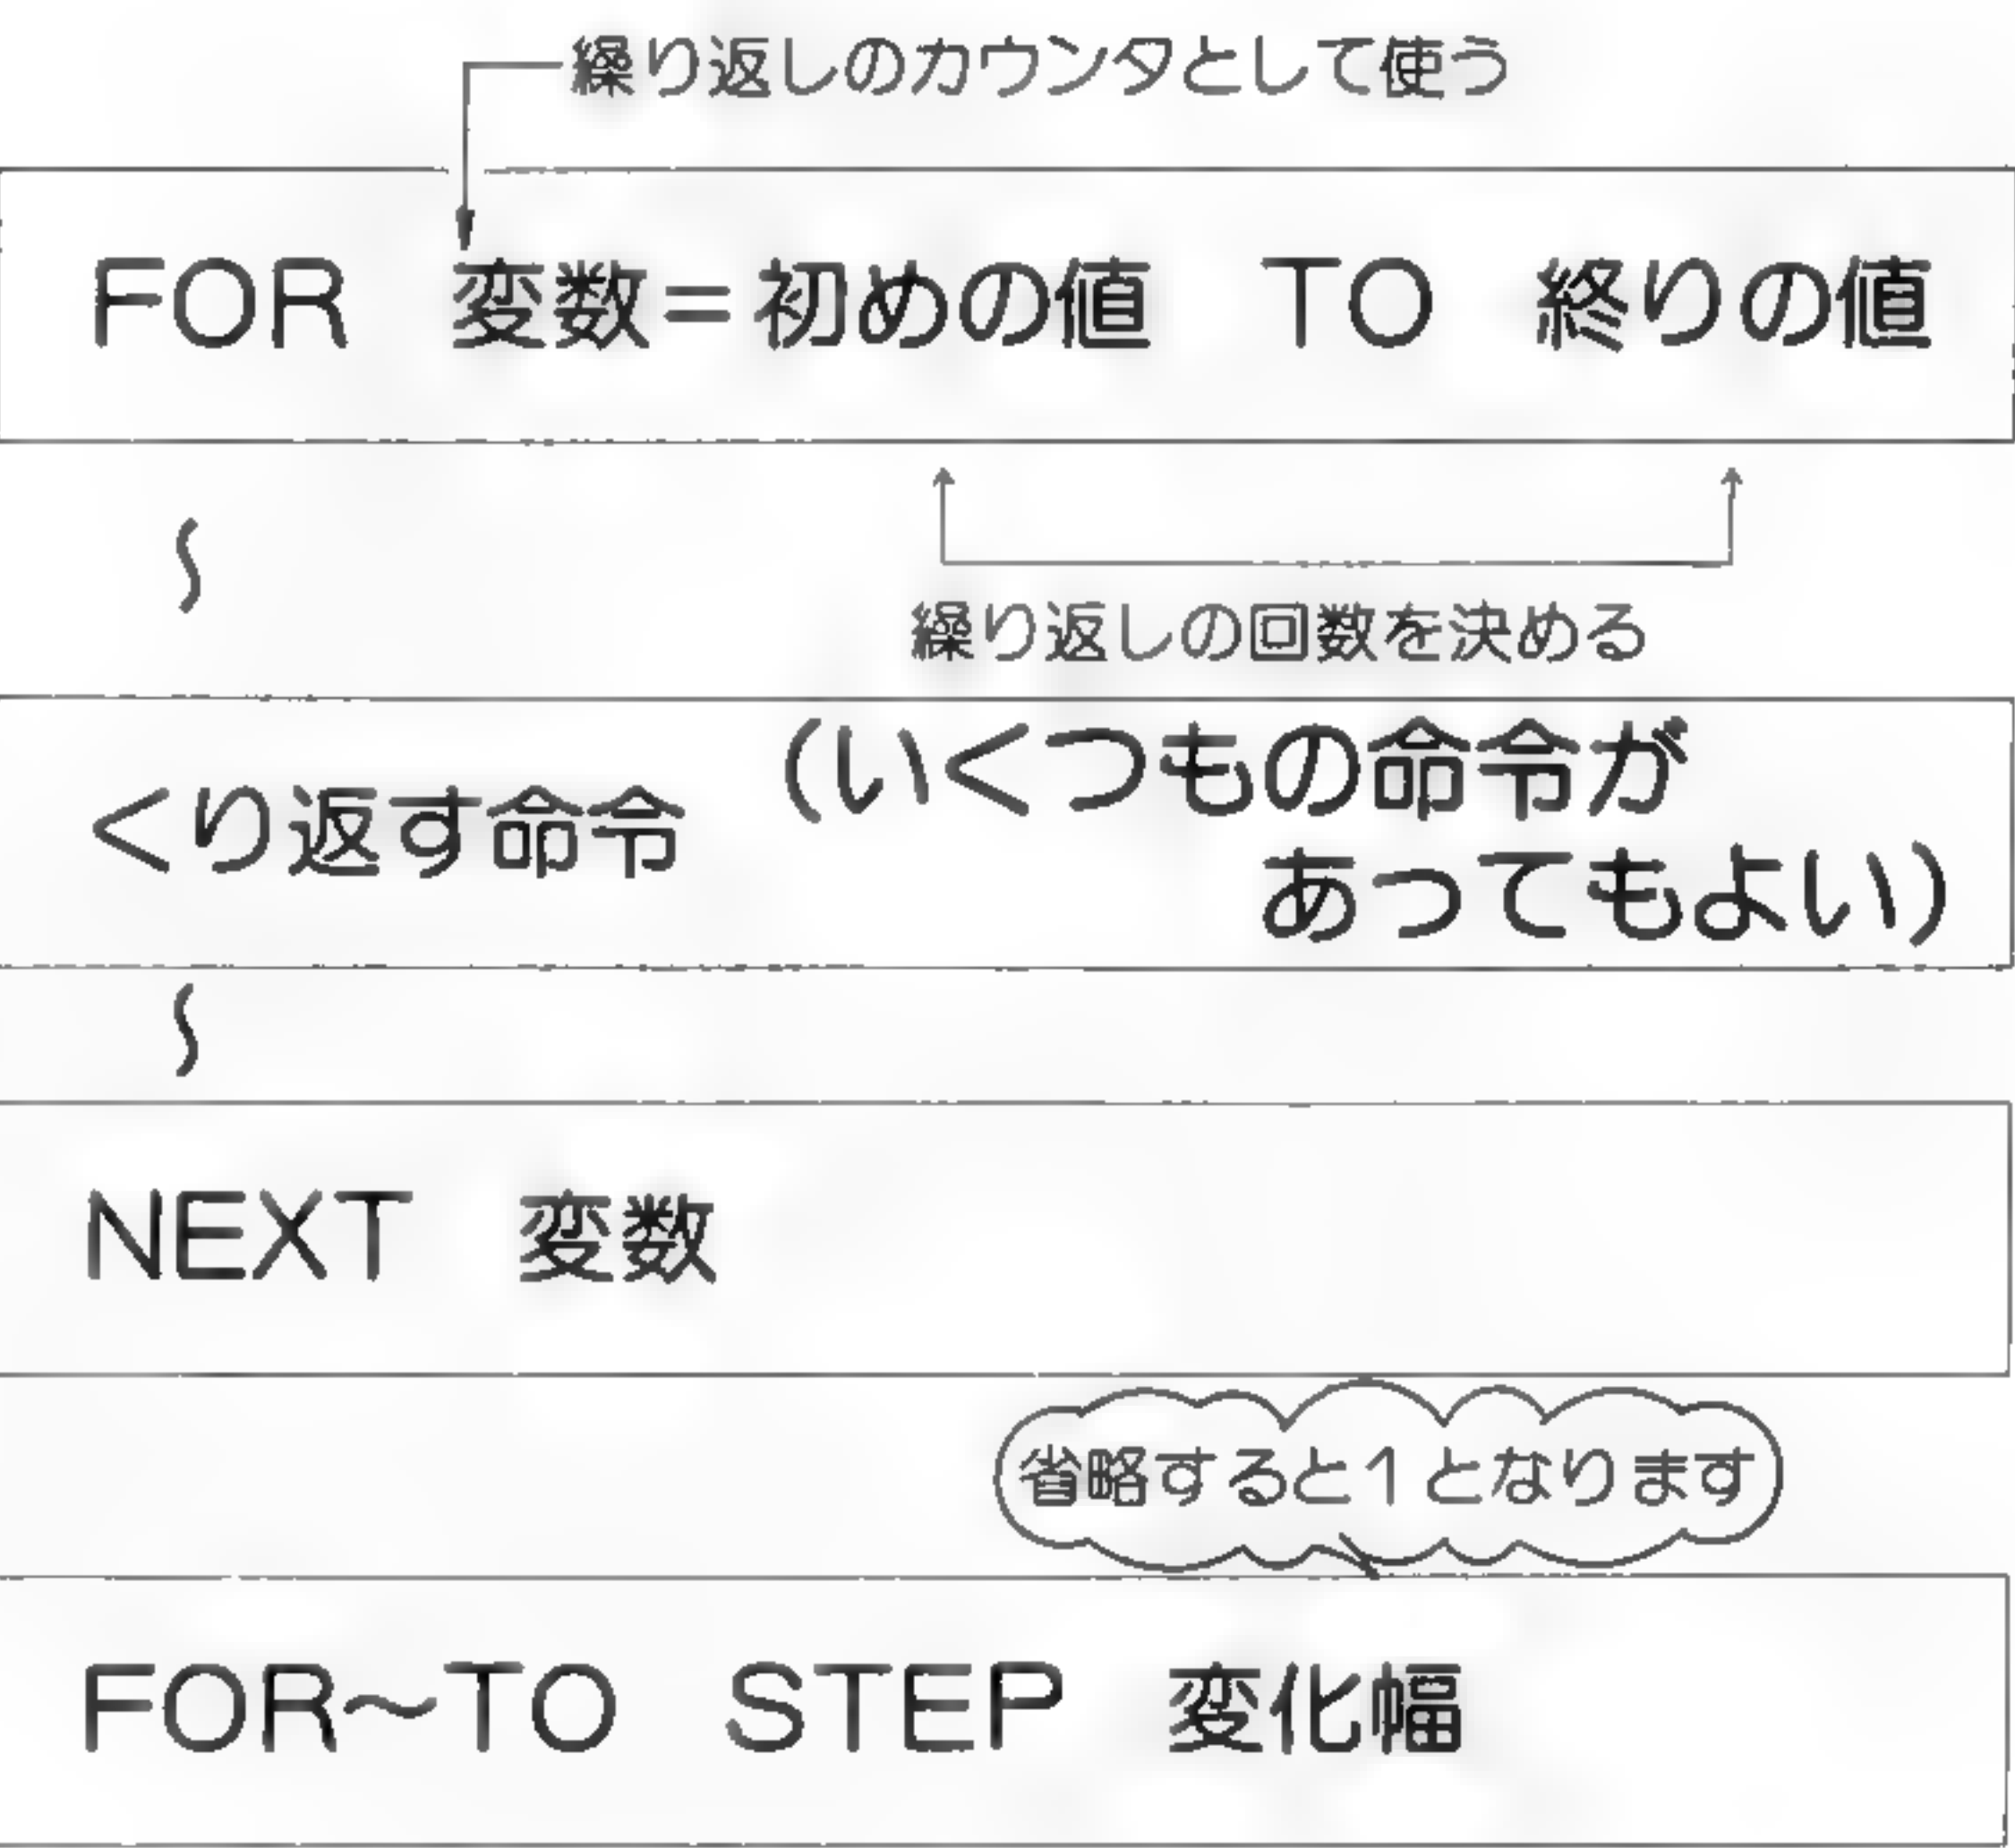 繰り返しのカウンタとして使う
FOR 変数=初めの値 TO 終りの値
〜
繰り返しの回数を決める
くり返す命令 (いくつもの命令が
あってもよい)
〜
NEXT 変数
省略すると1となります
FOR〜TO STEP 変化幅